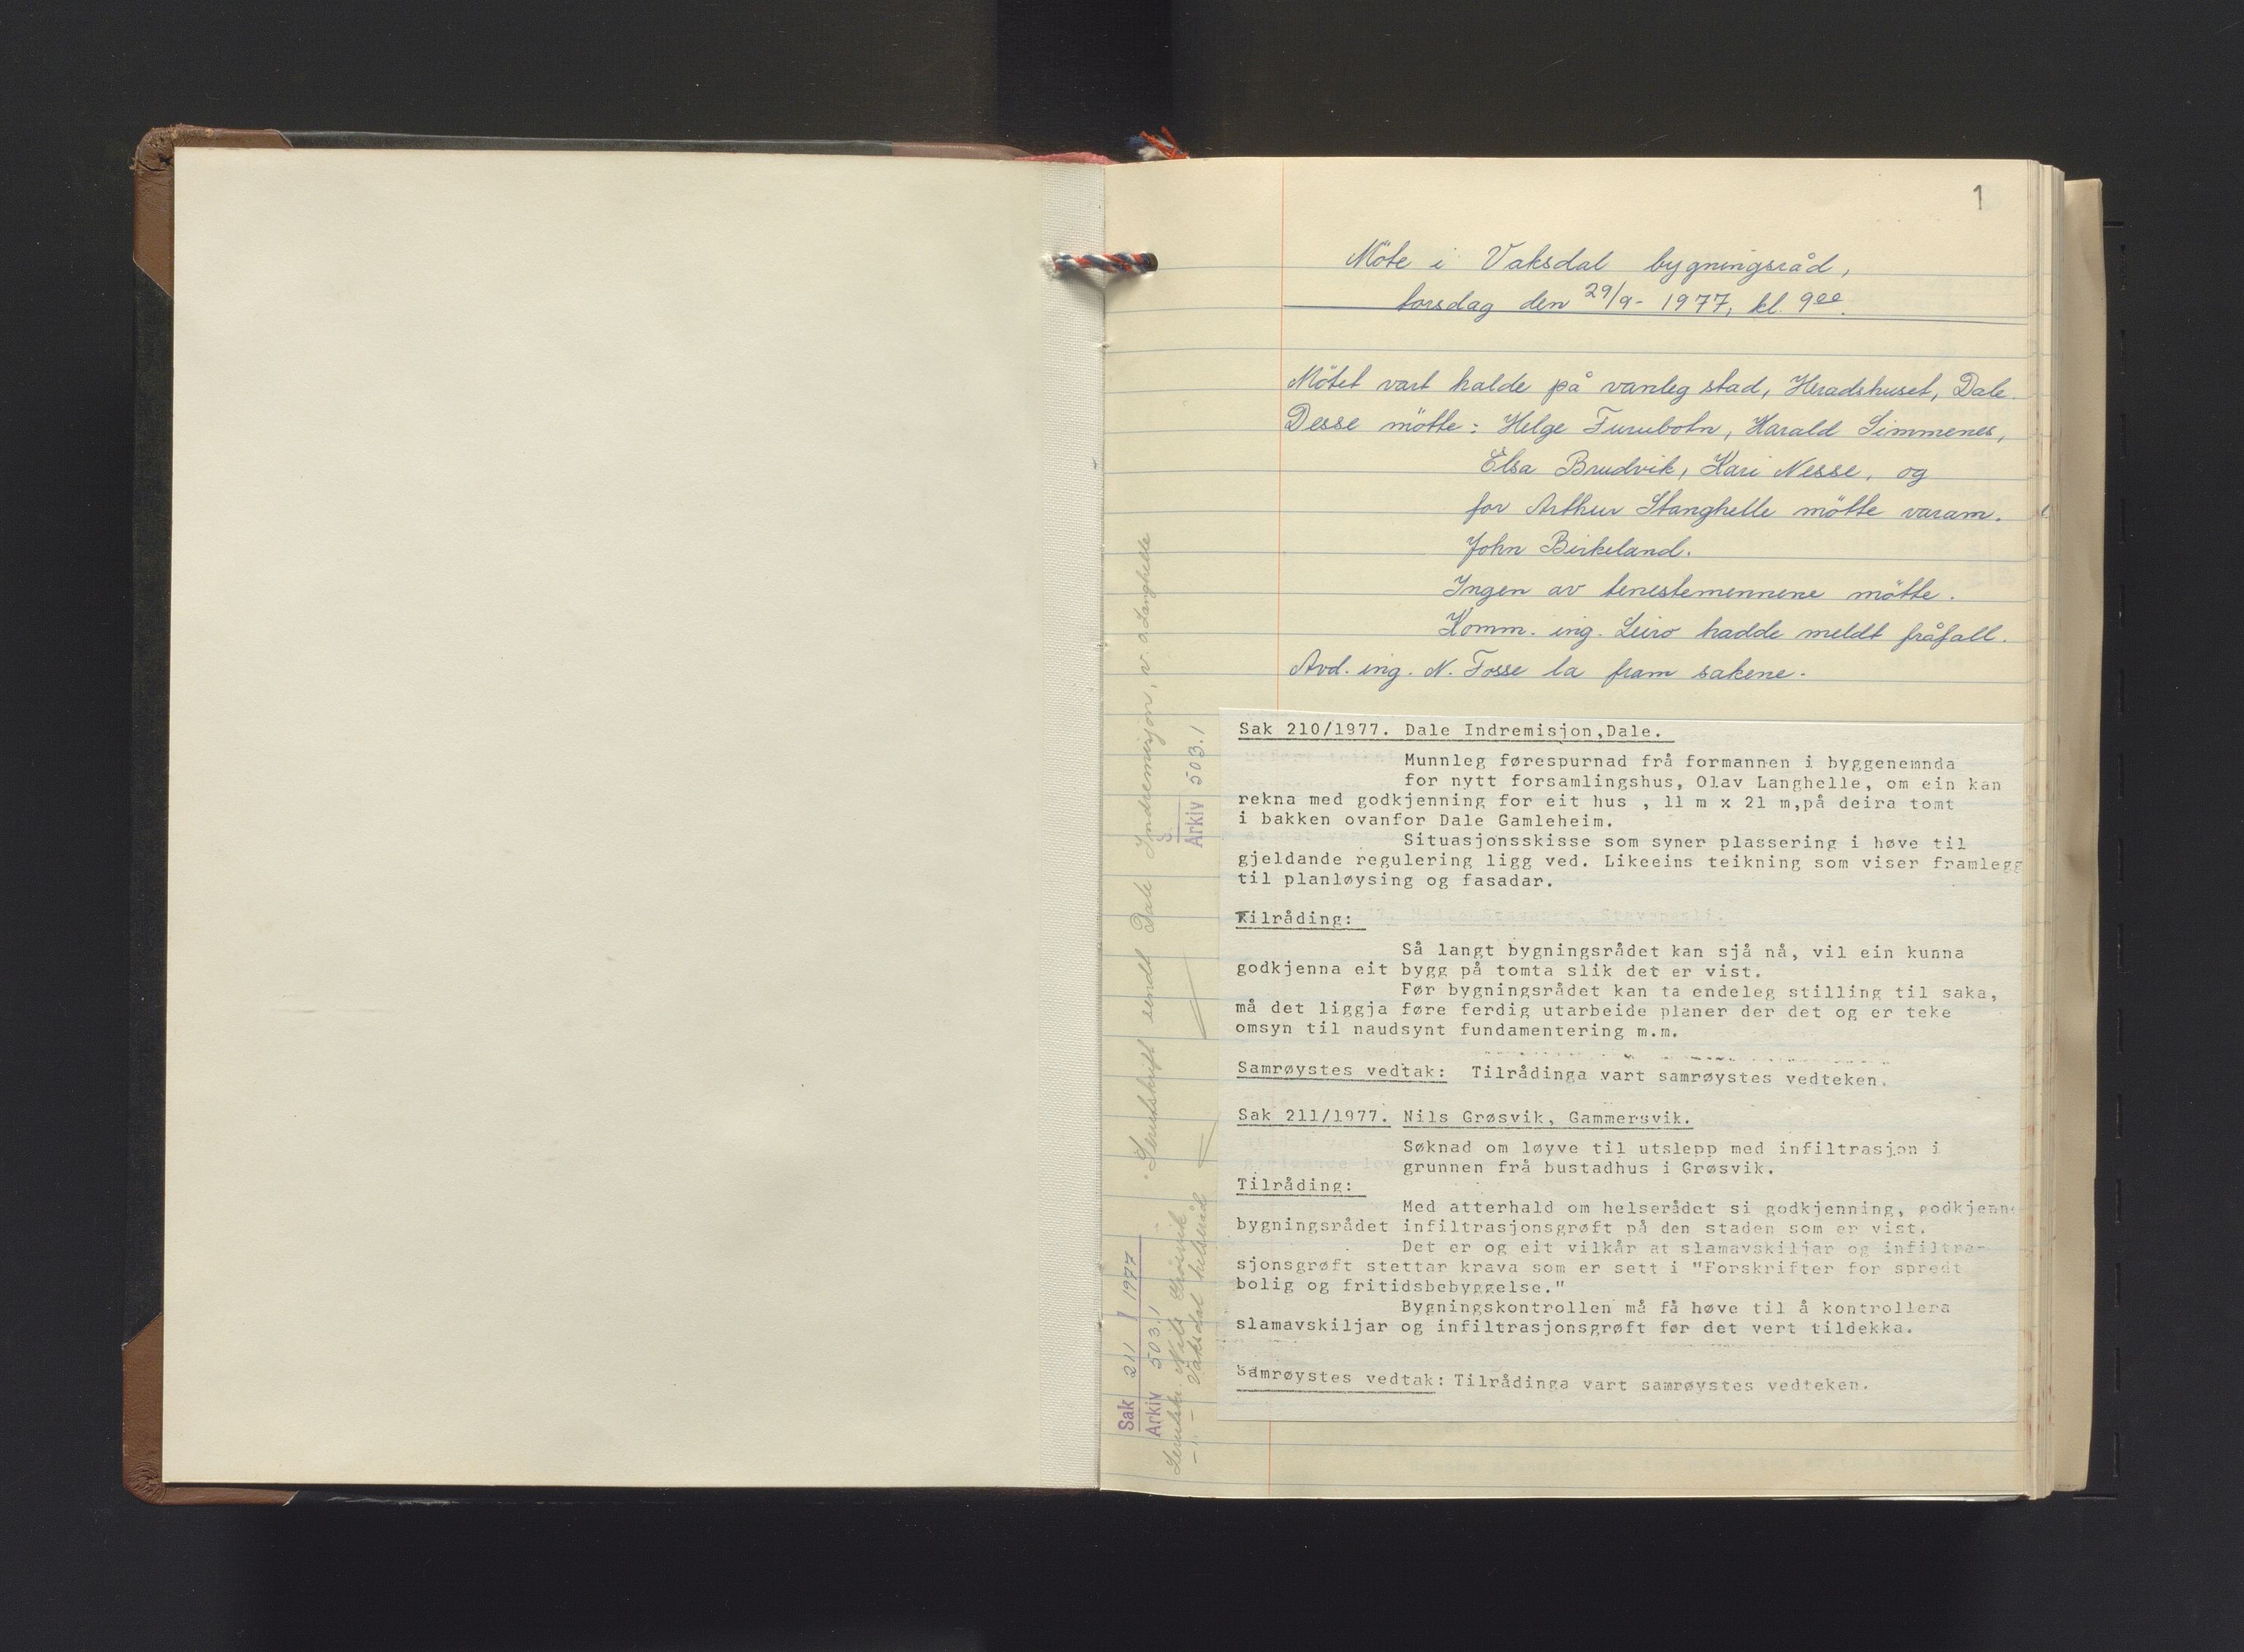 1
Möte i Vaksdal bygningsråd,
torsdag den 29/9- 1977, kl. 9⁰⁰.
Mötet vart halde på vanleg stad, Heradshuset, Dale.
Desse mötte: Helge Furubotn, Harald Simmenes,
Elsa Brudvik, Kari Nesse, og
for Arthur Stanghelle mötte varam.
John Birkeland.
Ingen av tenestemennene mötte.
Komm. ing. Leiro hadde meldt fråfall.
Avd. ing. N. Fosse la fram sakene.
Sak 210/1977. Dale Indremisjon,Dale.
Munnleg førespurnad frå formannen i byggenemnda
for nytt forsamlingshus, Olav Langhelle, om ein kan
rekna med godkjenning for eit hus , 11 m x 21 m,på deira tomt
i bakken ovanfor Dale Gamleheim.
Situasjonsskisse som syner plassering i høve til
gjeldande regulering ligg ved. Likeeins teikning som viser framlegg
til planløysing og fasadar.
Tilråding:
Så langt bygningsrådet kan sjå nå, vil ein kunna
godkjenna eit bygg på tomta slik det er vist.
Før bygningsrådet kan ta endeleg stilling til saka,
må det liggja føre ferdig utarbeide planer der det og er teke
omsyn til naudsynt fundamentering m.m.
Samrøystes vedtak: Tilrådinga vart samrøystes vedteken.
Sak 211/1977. Nils Grøsvik, Gammersvik.
Søknad om løyve til utslepp med infiltrasjon i
grunnen frå bustadhus i Grøsvik.
Tilråding:
Med atterhald om helserådet si godkjenning, godkjenn
bygningsrådet infiltrasjonsgrøft på den staden som er vist.
Det er og eit vilkår at slamavskiljar og infiltra-
sjonsgrøft stettar krava som er sett i "Forskrifter for spredt
bolig og fritidsbebyggelse."
Bygningskontrollen må få høve til å kontrollera
slamavskiljar og infiltrasjonsgrøft før det vert tildekka.
Samrøystes vedtak: Tilrådinga vart samrøystes vedteken.
Særutskrift sendt Dale Indremisjon, v. O. Langhelle
Arkiv 503.1
Sak 211 / 1977
Arkiv 503.1
Særutskr. Nils Grösvik
Vaksdal helseråd